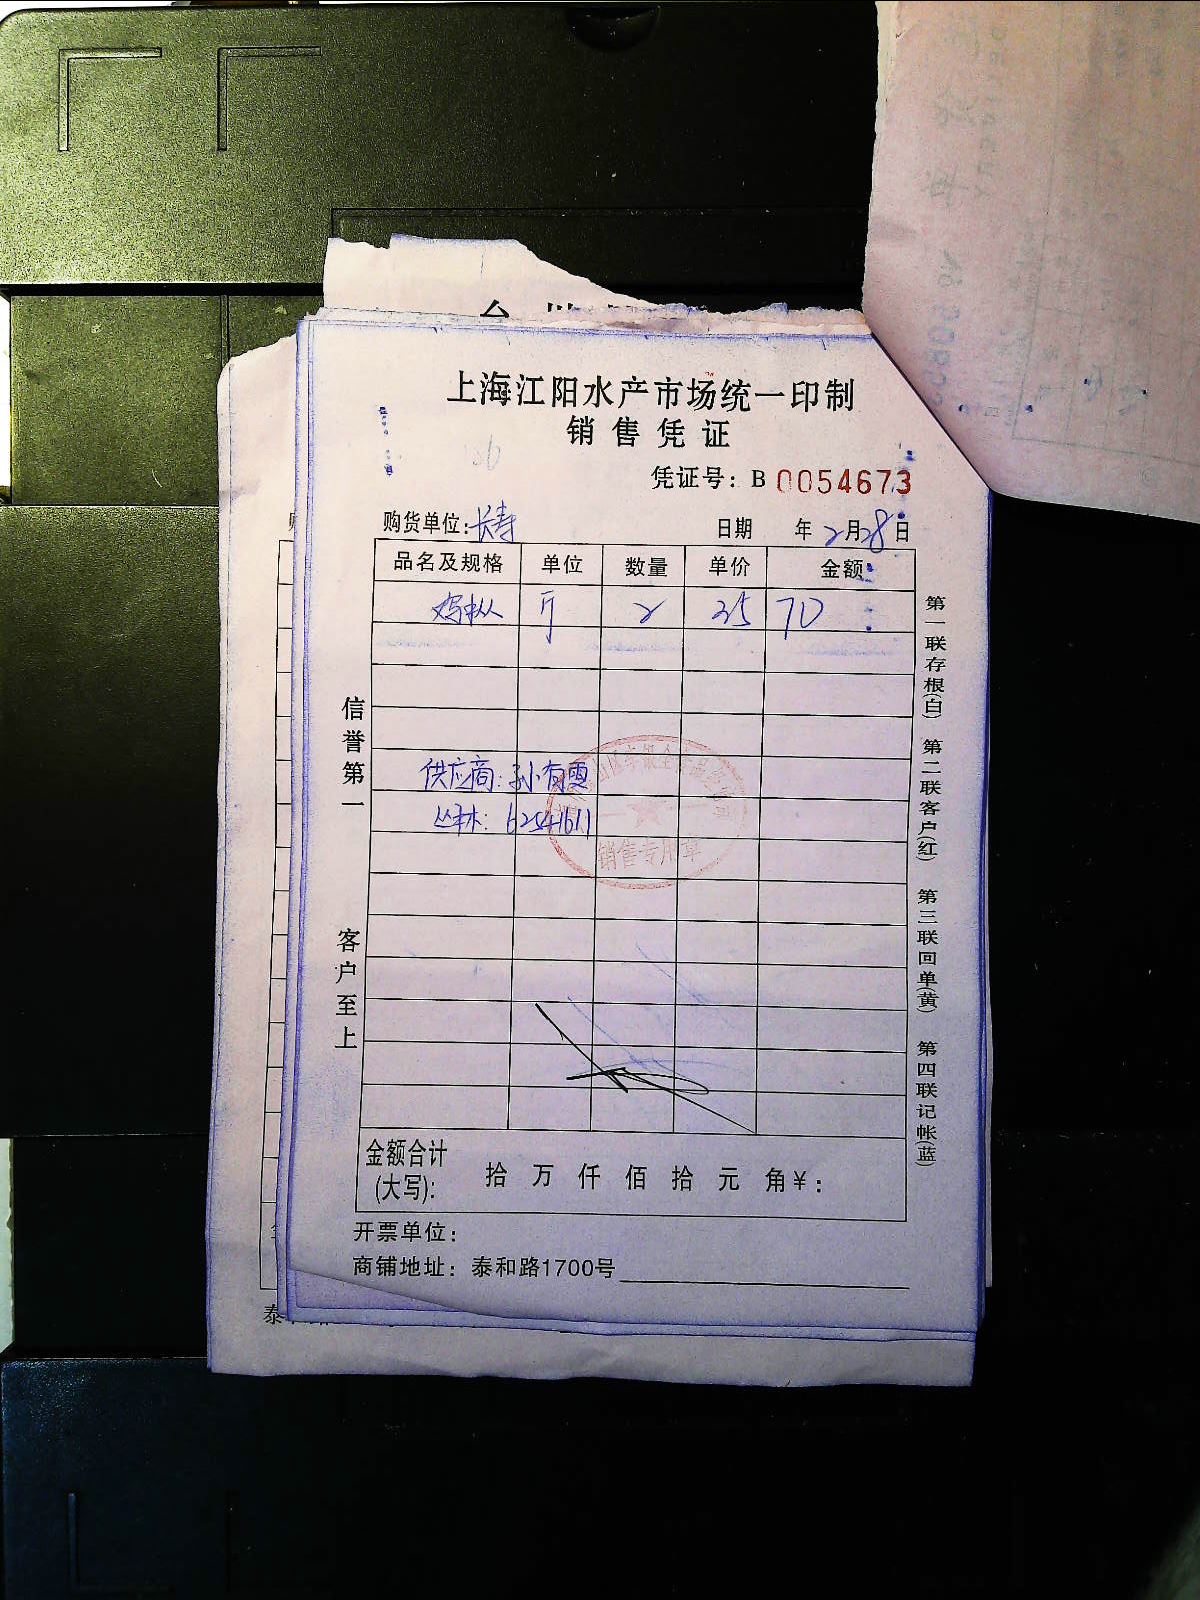 上海江阳水产市场统一印制
销售凭证
凭证号：B 0054673
购货单位：长寿 日期 年2月28日
品名及规格 单位 数量 单价 金额
鸡枞 斤 2 35 70
供应商：孙有雪
62541611
销售专用章
信誉第一
客户至上
第一联存根(白) 第二联客户(红) 第三联回单(黄) 第四联记帐(蓝)
金额合计
(大写)： 拾 万 仟 佰 拾 元 角 ¥：
开票单位：
商铺地址：泰和路1700号